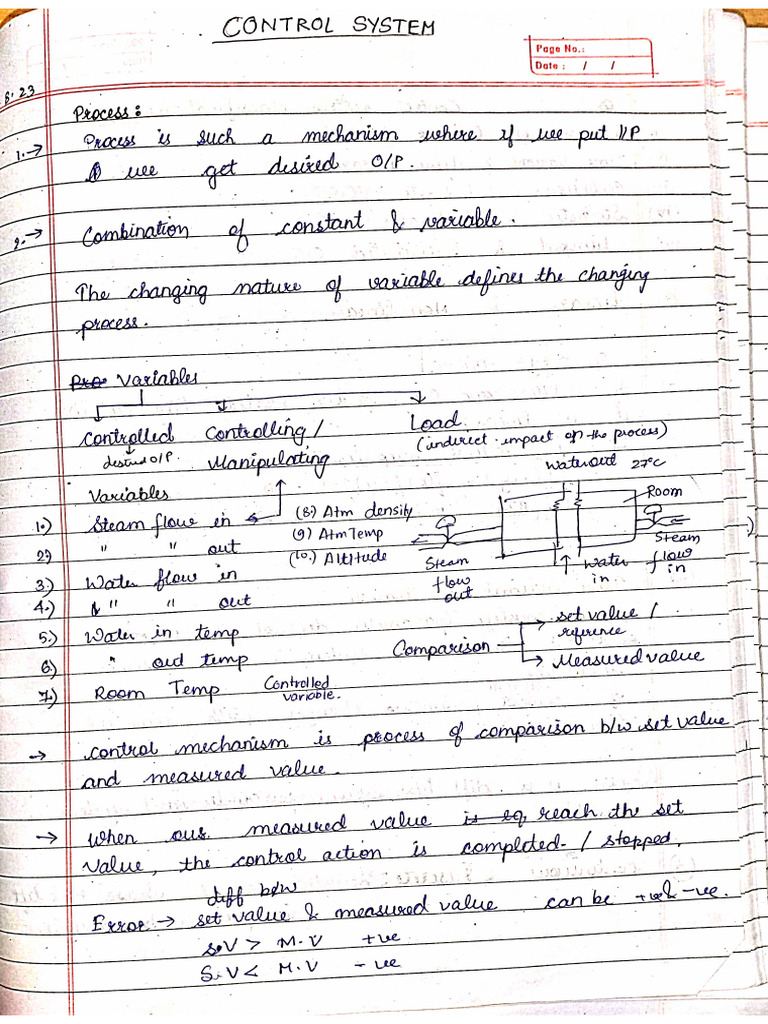 CONTROL SYSTEM
Page No.:
Date : / /
Process:
1.→ Process is such a mechanism where if we put I/P
we get desired O/P.
2.→ Combination of constant & variable.
The changing nature of variable defines the changing
process.
Pro Variables
Controlled Controlling / Load
desired O/P. Manipulating (indirect impact on the process)
Variables
Water out 27°C
Room
1.) Steam flow in (8.) Atm density
2) " " out (9) Atm Temp
(10.) Altitude
3.) Water flow in
4.) & " " out
5.) Water in temp
6) " out temp
7.) Room Temp Controlled
variable.
Steam
flow
out
Water
in
Steam
flow
in
Comparison → set value /
reference
→ Measured value
→ control mechanism is process of comparison b/w set value
and measured value.
→ When our measured value is eq reach the set
value, the control action is completed / stopped.
diff b/w
Error → set value & measured value can be +ve & -ve.
S.V > M.V +ve
S.V < M.V - ve